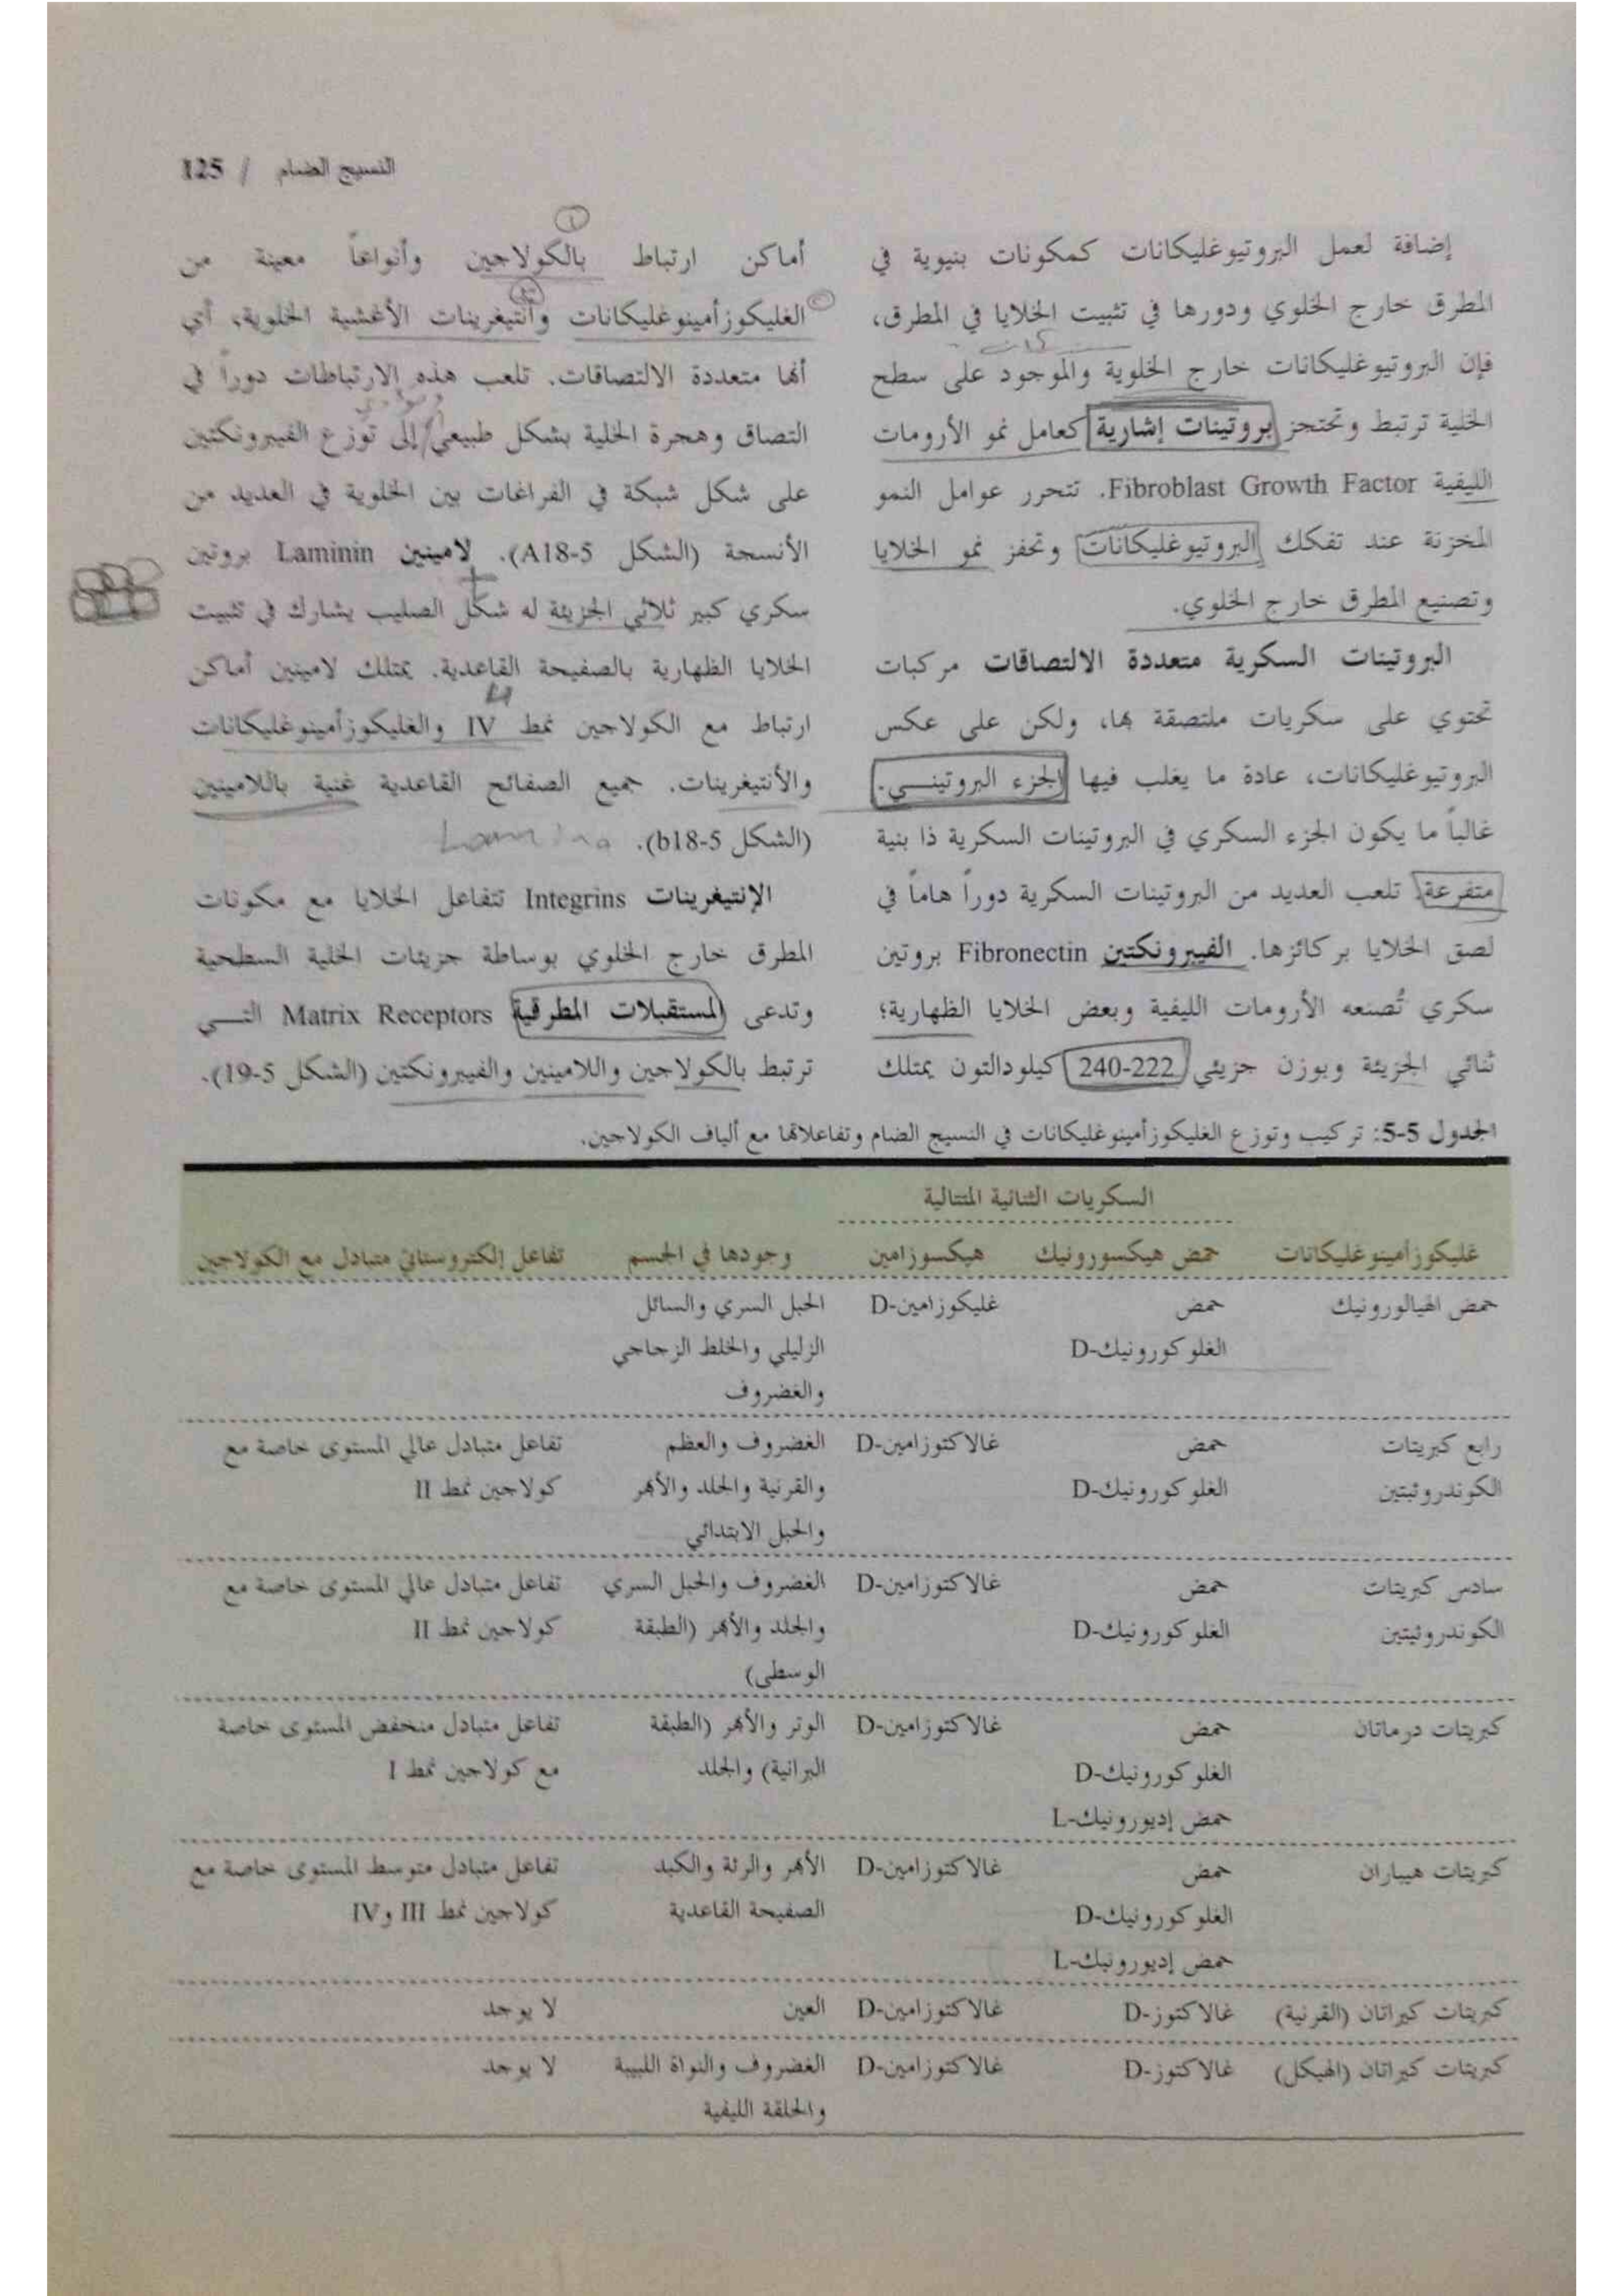 النسيج الضام / 125
إضافة لعمل البروتيوغليكانات كمكونات بنيوية في
المطرق خارج الخلوي ودورها في تثبيت الخلايا في المطرق،
فإن البروتيوغليكانات خارج الخلوية والموجود على سطح
الخلية ترتبط وتحتجز بروتينات إشارية كعامل نمو الأرومات
الليفية Fibroblast Growth Factor. تتحرر عوامل النمو
المخزنة عند تفكك البروتيوغليكانات وتحفز نمو الخلايا
وتصنيع المطرق خارج الخلوي.
البروتينات السكرية متعددة الالتصاقات مركبات
تحتوي على سكريات ملتصقة بها، ولكن على عكس
البروتيوغليكانات، عادة ما يغلب فيها الجزء البروتينـــي.
غالباً ما يكون الجزء السكري في البروتينات السكرية ذا بنية
متفرعة. تلعب العديد من البروتينات السكرية دوراً هاماً في
لصق الخلايا بركائزها. الفيبرونكتين Fibronectin بروتين
سكري تُصنعه الأرومات الليفية وبعض الخلايا الظهارية؛
ثنائي الجزيئة وبوزن جزيئي 222-240 كيلودالتون يمتلك
أماكن ارتباط بالكولاجين وأنواعاً معينة من
الغليكوزأمينوغليكانات وأنتيغرينات الأغشية الخلوية، أي
أنها متعددة الالتصاقات. تلعب هذه الارتباطات دوراً في
التصاق وهجرة الخلية بشكل طبيعي إلى توزع الفيبرونكتين
على شكل شبكة في الفراغات بين الخلوية في العديد من
الأنسجة (الشكل 5-A18). لامينين Laminin بروتين
سكري كبير ثلاثي الجزيئة له شكل الصليب يشارك في تثبيت
الخلايا الظهارية بالصفيحة القاعدية. يمتلك لامينين أماكن
ارتباط مع الكولاجين نمط IV والغليكوزأمينوغليكانات
والأنتيغرينات. جميع الصفائح القاعدية غنية باللامينين
(الشكل 5-b18).
الإنتيغرينات Integrins تتفاعل الخلايا مع مكونات
المطرق خارج الخلوي بوساطة جزيئات الخلية السطحية
وتدعى المستقبلات المطرقية Matrix Receptors التـــي
ترتبط بالكولاجين واللامينين والفيبرونكتين (الشكل 5-19).
الجدول 5-5: تركيب وتوزع الغليكوزأمينوغليكانات في النسيج الضام وتفاعلاتها مع ألياف الكولاجين.
السكريات الثنائية المتتالية
غليكوزأمينوغليكانات حمض هيكسورونيك هيكسوزامين وجودها في الجسم تفاعل إلكتروستاتي متبادل مع الكولاجين
حمض الهيالورونيك حمض غليكوزامين-D الحبل السري والسائل
الغلوكورونيك-D الزليلي والخلط الزجاجي
والغضروف
رابع كبريتات حمض غالاكتوزامين-D الغضروف والعظم تفاعل متبادل عالي المستوى خاصة مع
الكوندروئيتين الغلوكورونيك-D والقرنية والجلد والأبهر كولاجين نمط II
والحبل الابتدائي
سادس كبريتات حمض غالاكتوزامين-D الغضروف والحبل السري تفاعل متبادل عالي المستوى خاصة مع
الكوندروئيتين الغلوكورونيك-D والجلد والأبهر (الطبقة كولاجين نمط II
الوسطى)
كبريتات درماتان حمض غالاكتوزامين-D الوتر والأبهر (الطبقة تفاعل متبادل منخفض المستوى خاصة
الغلوكورونيك-D البرانية) والجلد مع كولاجين نمط I
حمض إديورونيك-L
كبريتات هيباران حمض غالاكتوزامين-D الأبهر والرئة والكبد تفاعل متبادل متوسط المستوى خاصة مع
الغلوكورونيك-D الصفيحة القاعدية كولاجين نمط III وIV
حمض إديورونيك-L
كبريتات كيراتان (القرنية) غالاكتوز-D غالاكتوزامين-D العين لا يوجد
كبريتات كيراتان (الهيكل) غالاكتوز-D غالاكتوزامين-D الغضروف والنواة اللبيبة لا يوجد
والحلقة الليفية